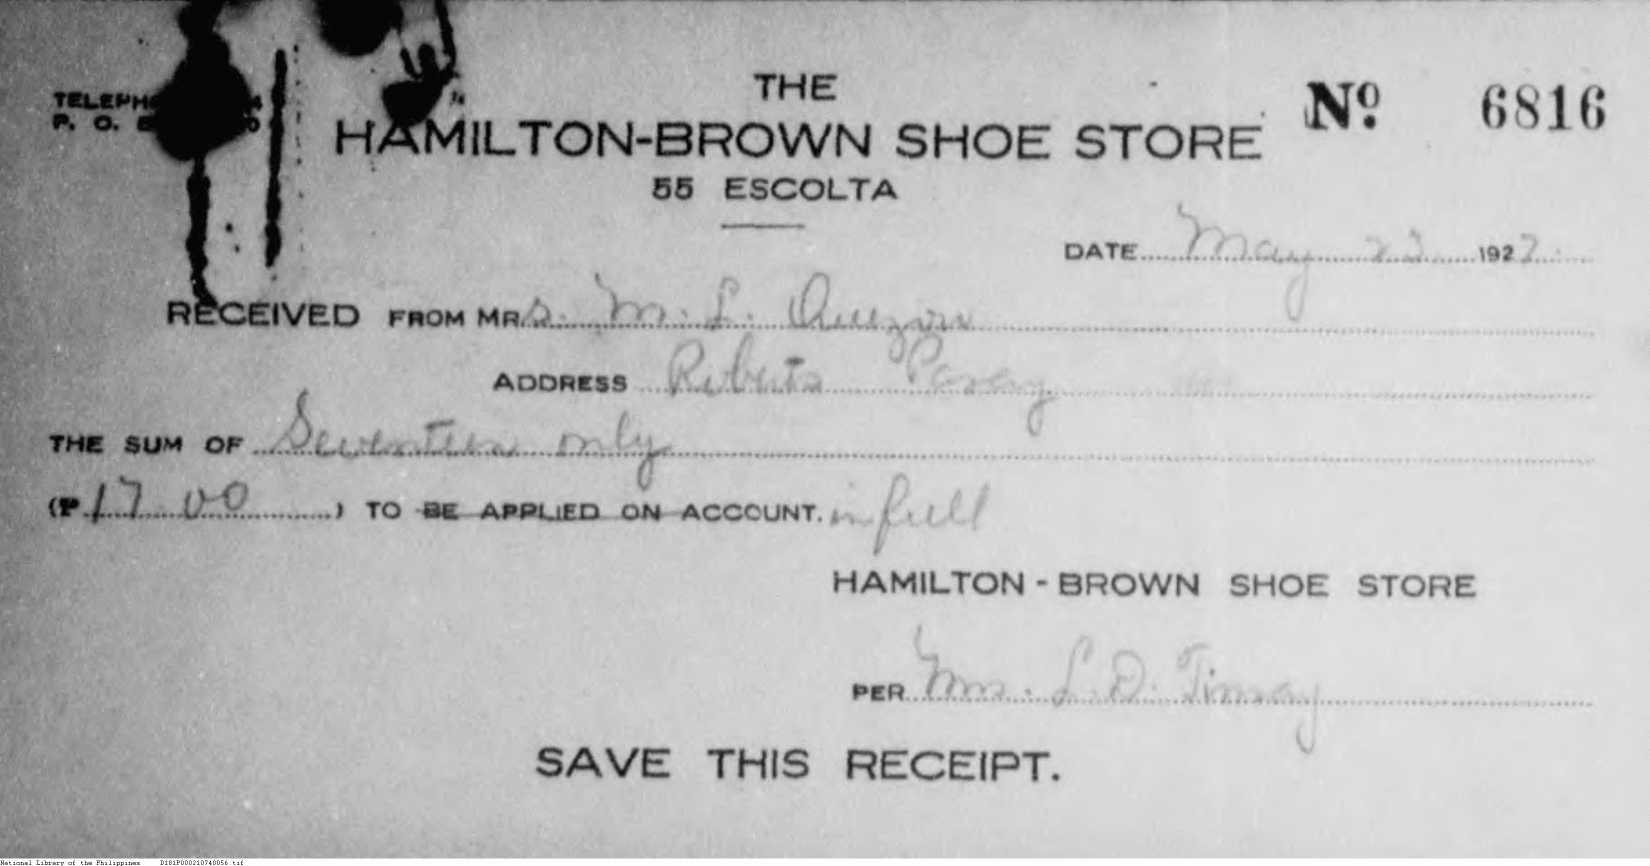 THE
Nº 6816
TELEPH
P. O.
HAMILTON-BROWN SHOE STORE
55 ESCOLTA
DATE May 23 1922
RECEIVED FROM MRS. M. L. Quezon
ADDRESS Roberts Pasay
THE SUM OF Seventeen only
(₱ 17 00 ) TO BE APPLIED ON ACCOUNT. in full
HAMILTON - BROWN SHOE STORE
PER Mrs. L. D. Tinsay
SAVE THIS RECEIPT.
National Library of the Philippines D181P000210740056.tif